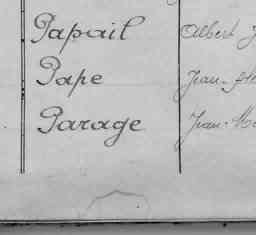 Papail Albert
Pape Jean-
Parage Jean-